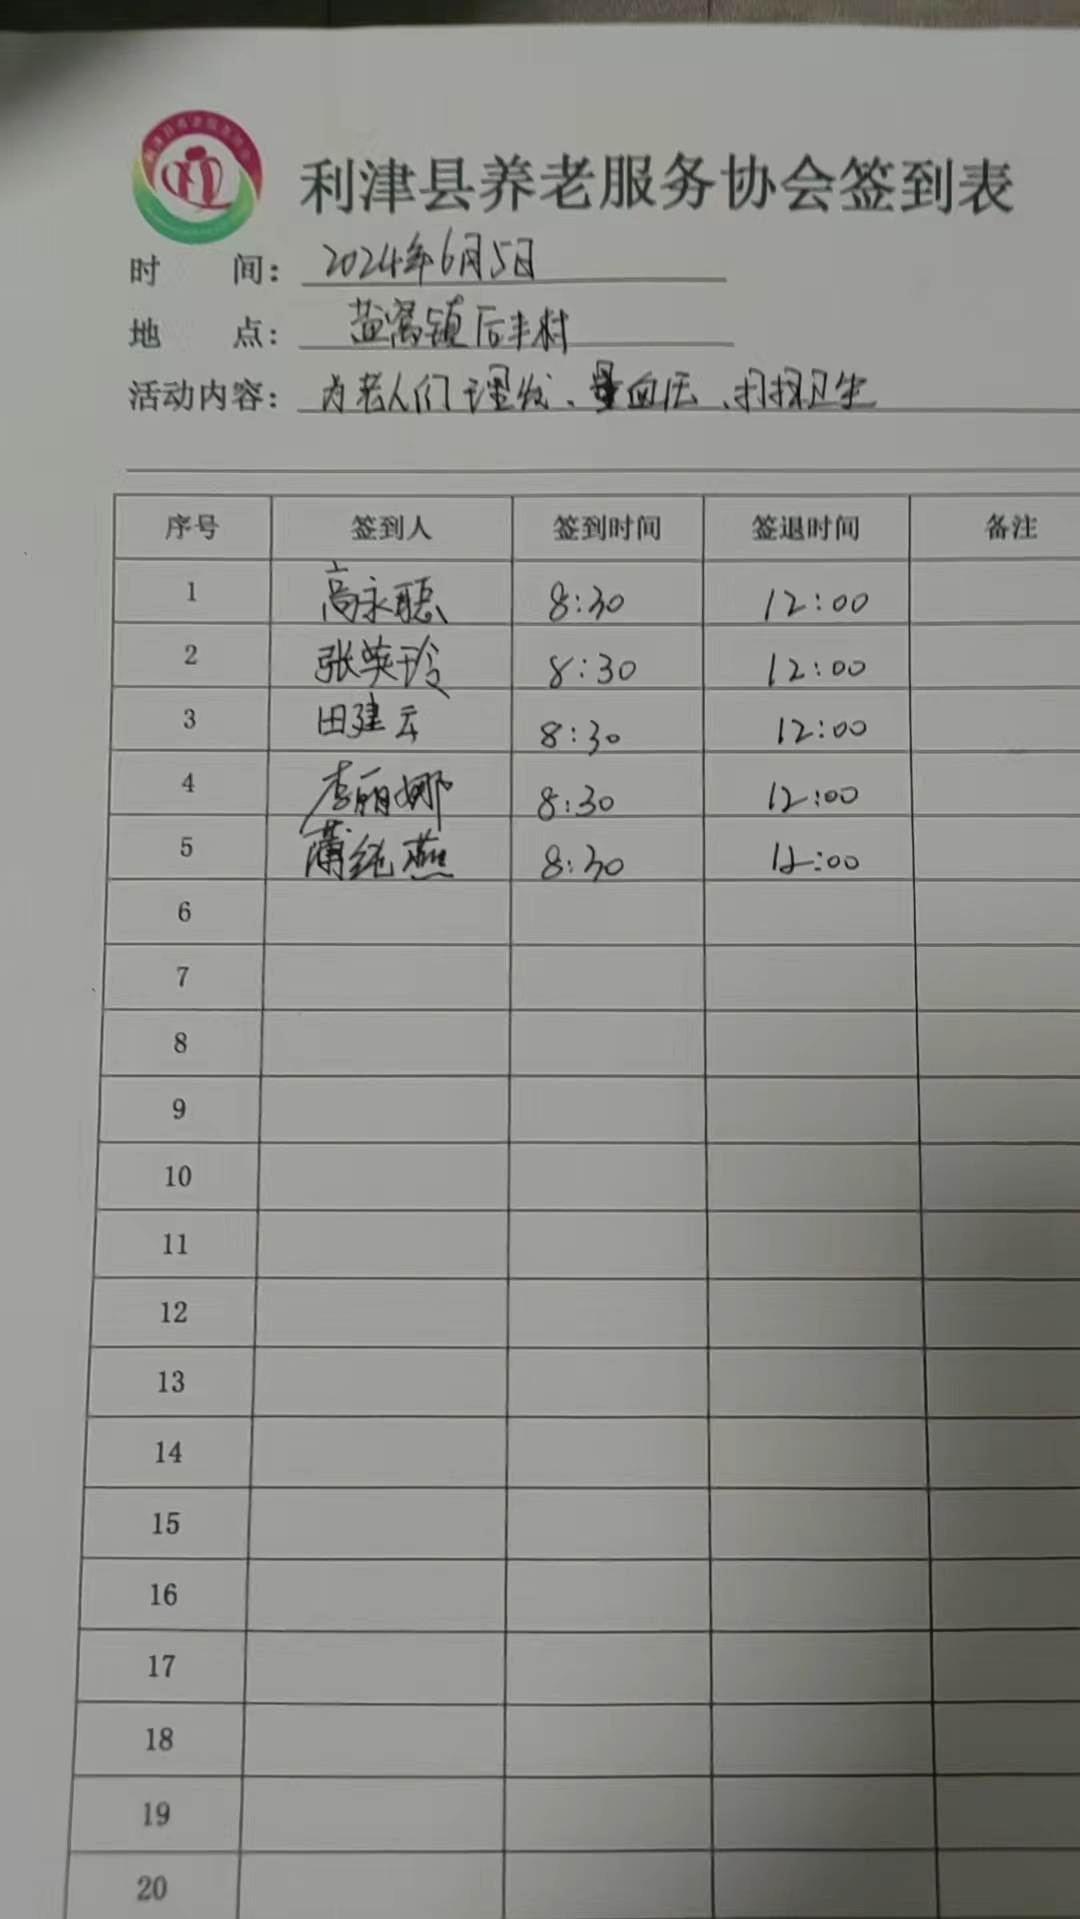 利津县养老服务协会签到表
时 间: 2024年6月5日
地 点: 盐窝镇后丰村
活动内容: 为老人们理发、量血压、打扫卫生
序号 签到人 签到时间 签退时间 备注
1 高永聪 8:30 12:00
2 张英玲 8:30 12:00
3 田建云 8:30 12:00
4 李丽娜 8:30 12:00
5 燕 8:30 12:00
6
7
8
9
10
11
12
13
14
15
16
17
18
19
20